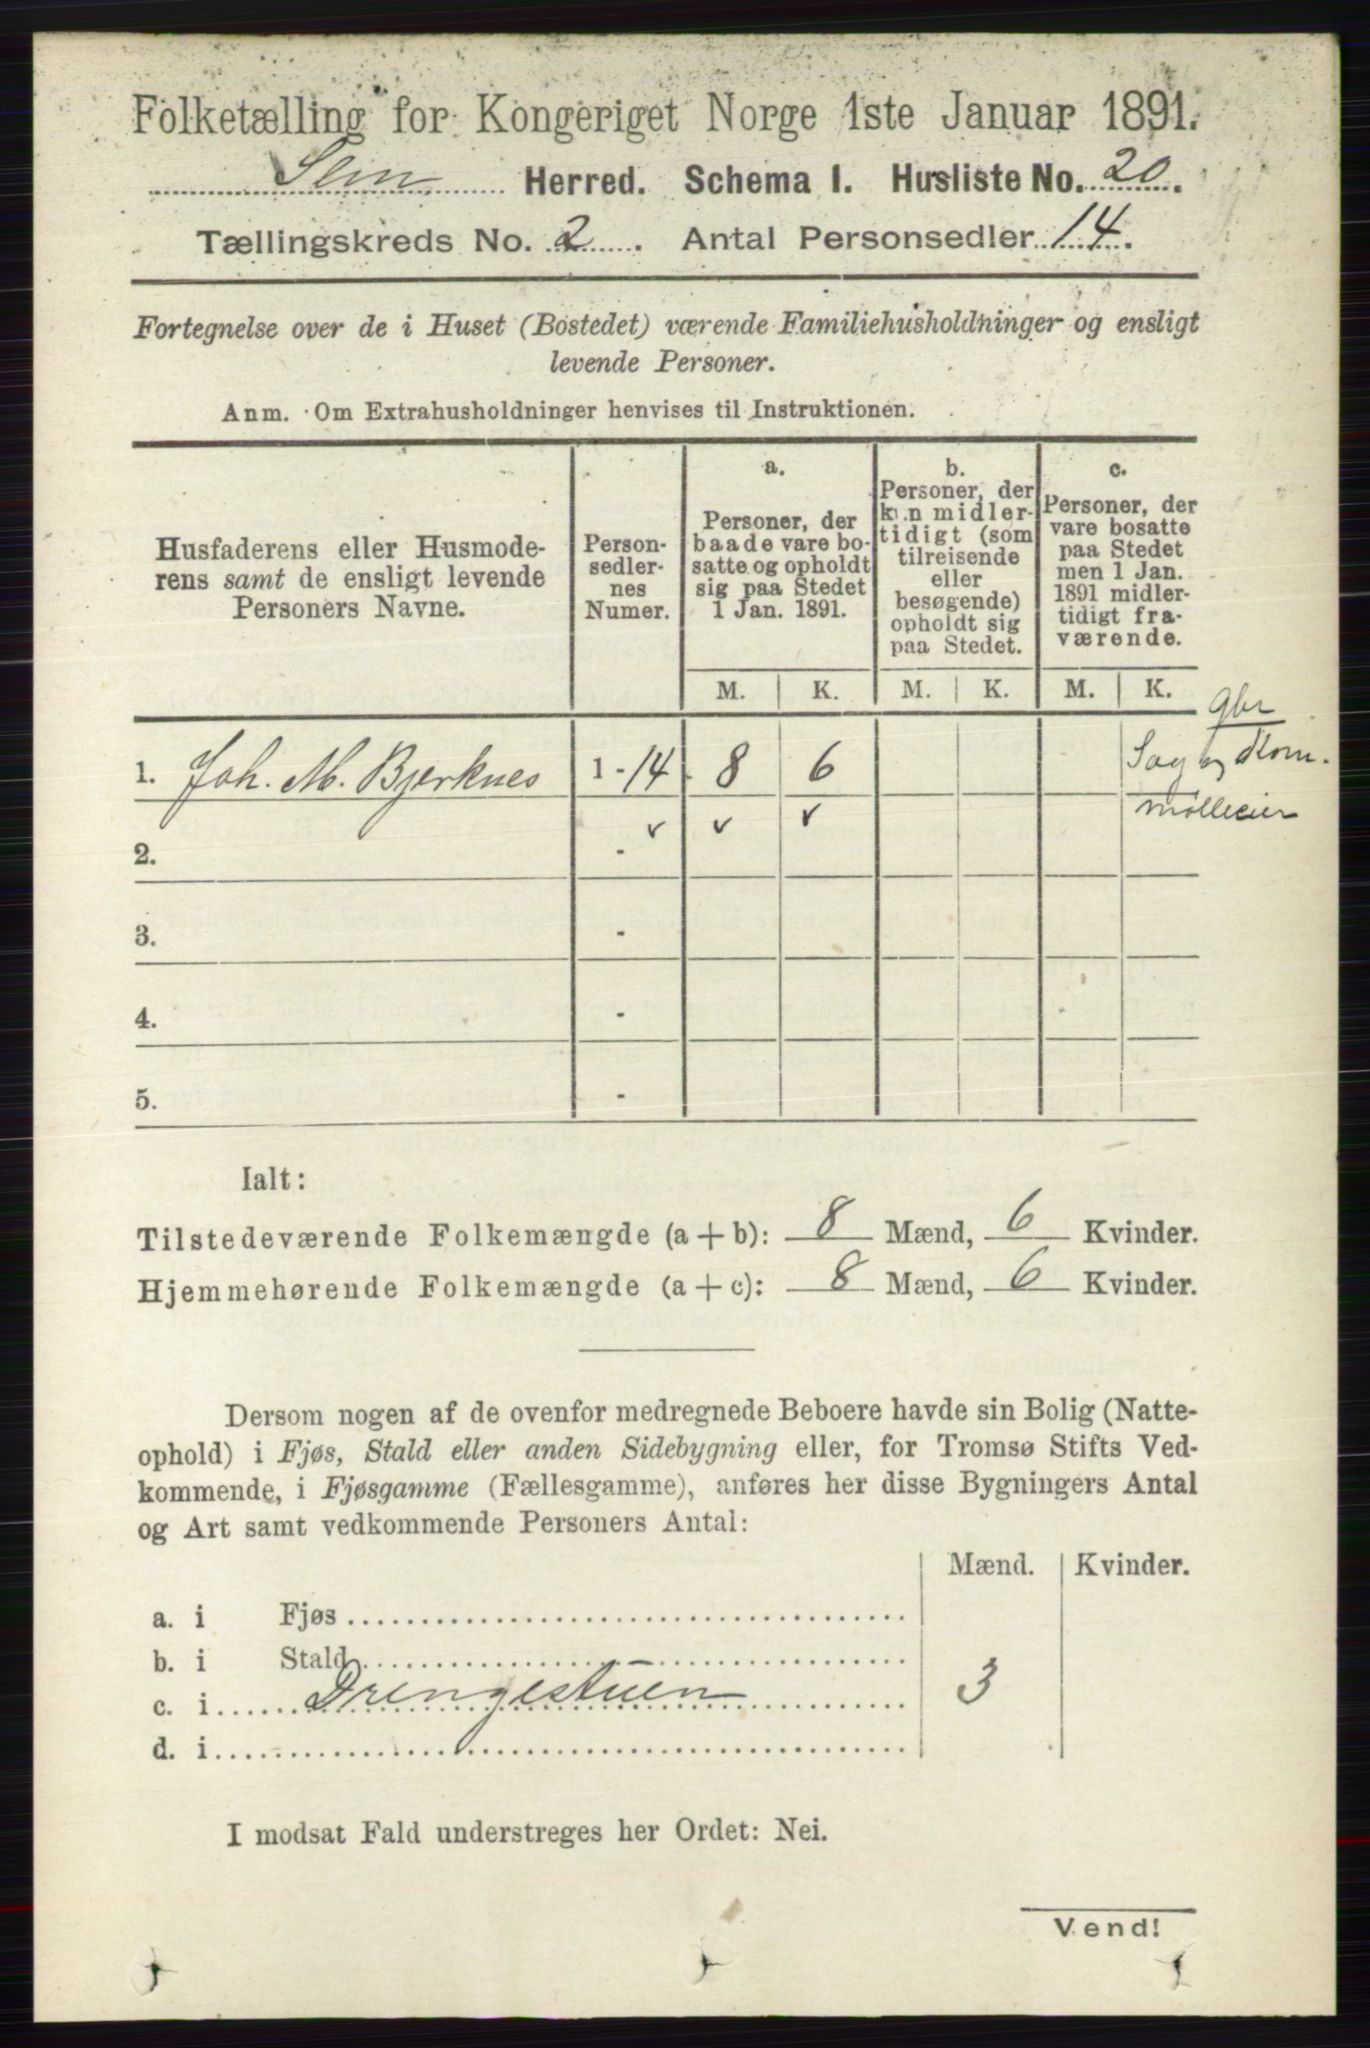 Folketælling for Kongeriget Norge 1ste Januar 1891.
Sem Herred. Schema I. Husliste No. 20.
Tællingskreds No. 2. Antal Personsedler 14.
Fortegnelse over de i Huset (Bostedet) værende Familiehusholdninger og ensligt
levende Personer.
Anm. Om Extrahusholdninger henvises til Instruktionen.
Husfaderens eller Husmode-
rens samt de ensligt levende
Personers Navne.
Person-
sedler-
nes
Numer.
a.
Personer, der
baade vare bo-
satte og opholdt
sig paa Stedet
1 Jan. 1891.
b.
Personer, der
kun midler-
tidigt (som
tilreisende
eller
besøgende)
opholdt sig
paa Stedet.
c.
Personer, der
vare bosatte
paa Stedet
men 1 Jan.
1891 midler-
tidigt fra-
værende.
M. K. M. K. M. K.
gbr
1. Joh. M. Bjerknes 1-14 8 6 Sag og Korn-
mølleeier
✓ ✓ ✓
2. -
3. -
4. -
5. -
Ialt:
Tilstedeværende Folkemængde (a+b): 8 Mænd, 6 Kvinder.
Hjemmehørende Folkemængde (a+c): 8 Mænd, 6 Kvinder.
Dersom nogen af de ovenfor medregnede Beboere havde sin Bolig (Natte-
ophold) i Fjøs, Stald eller anden Sidebygning eller, for Tromsø Stifts Ved-
kommende, i Fjøsgamme (Fællesgamme), anføres her disse Bygningers Antal
og Art samt vedkommende Personers Antal:
Mænd. Kvinder.
a. i Fjøs
b. i Stald
c. i Drengestuen 3
d. i
I modsat Fald understreges her Ordet: Nei.
Vend!